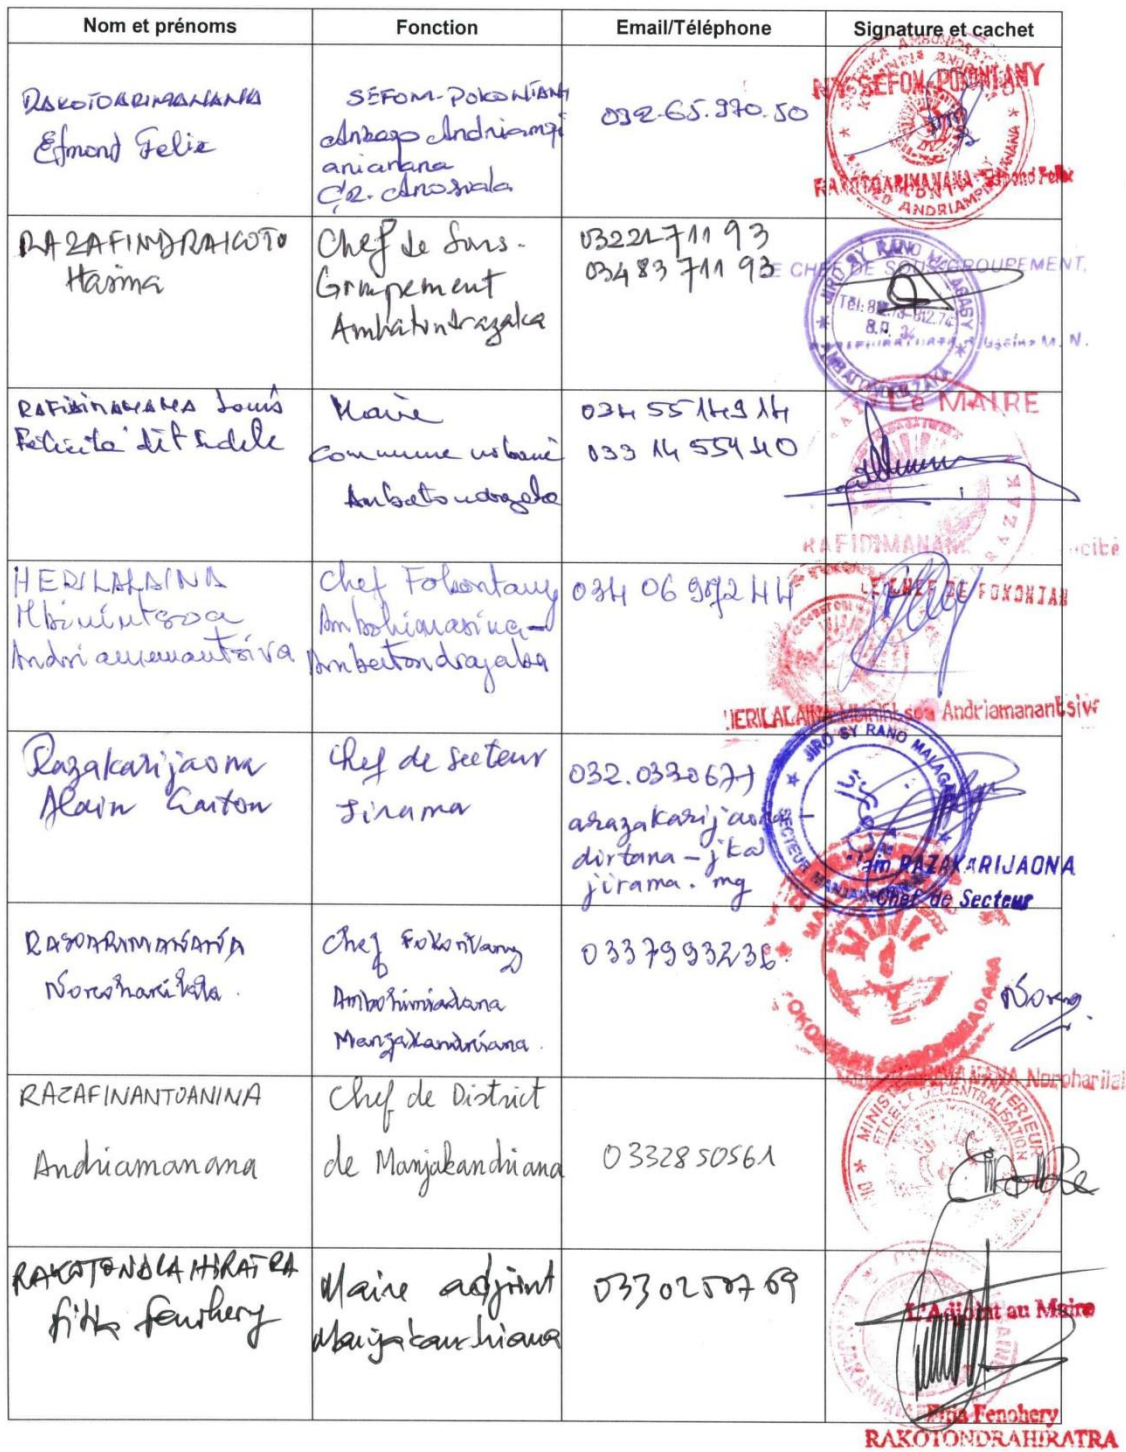 Nom et prénoms
Fonction
Email/Téléphone
Signature et cachet
RAKOTOARIMANANA
Edmond Felix
SEFOM-POKONTANY
Ankazo Andriampi
anianana
CR. Anosiala
032.65.970.50
NY SEFOM-POKONTANY
RAKOTOARIMANANA Edmond Felix
RAZAFINDRAKOTO
Hasina
Chef de Sous-
Groupement
Ambatondrazaka
03221 711 93
034 83 711 93
LE CHEF DE SOUS GROUPEMENT,
JIRO SY RANO MALAGASY
AMBATONDRAZAKA
RAFIDIMANANA Louis
Félicité dit Fidele
Maire
Commune urbaine
Ambatondrazaka
034 55 149 14
033 14 554 40
Le MAIRE
RAFIDIMANANA
HERILALAINA
Mbinintsoa
Andriamanantsiva
Chef Fokontany
Ambohimasina-
Ambatondrazaka
034 06 972 44
LE CHEF DE FOKONTAN
HERILALAINA Mbinintsoa Andriamanantsiva
Razakarijaona
Alain Gaston
Chef de secteur
Jirama
032.0330671
arazakarijaona
dirtana-jka
jirama.mg
JIRO SY RANO MALAGASY
SECTEUR MANJAKANDRIANA
Alain RAZAKARIJAONA
Chef de Secteur
RASOARIMANANA
Noroharilala.
Chef Fokontany
Ambohimiadana
Manjakandriana.
033 79 932 36.
Noro
RAZAFINANTOANINA
Andriamanana
Chef de District
de Manjakandriana
033 28 505 61
RAKOTONDRAHIRATRA
Fitia Fenohery
Maire adjoint
Manjakandriana
033 02 507 69
L'Adjoint au Maire
Fitia Fenohery
RAKOTONDRAHIRATRA